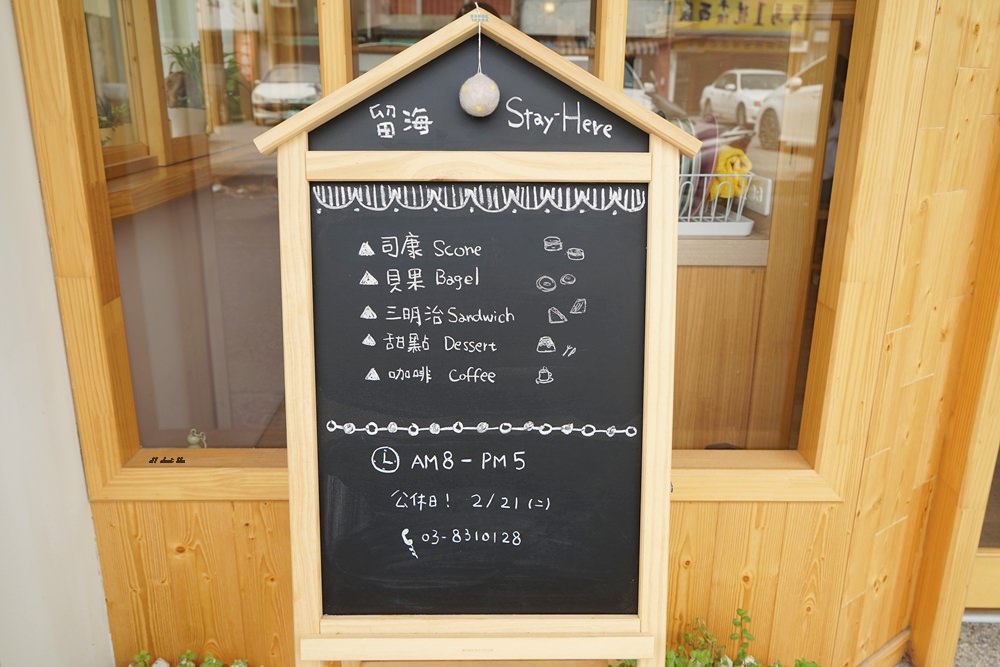 留海 Stay-Here
司康 Scone
貝果 Bagel
三明治 Sandwich
甜點 Dessert
咖啡 Coffee
AM8-PM5
公休日! 2/21 (二)
03-8310128